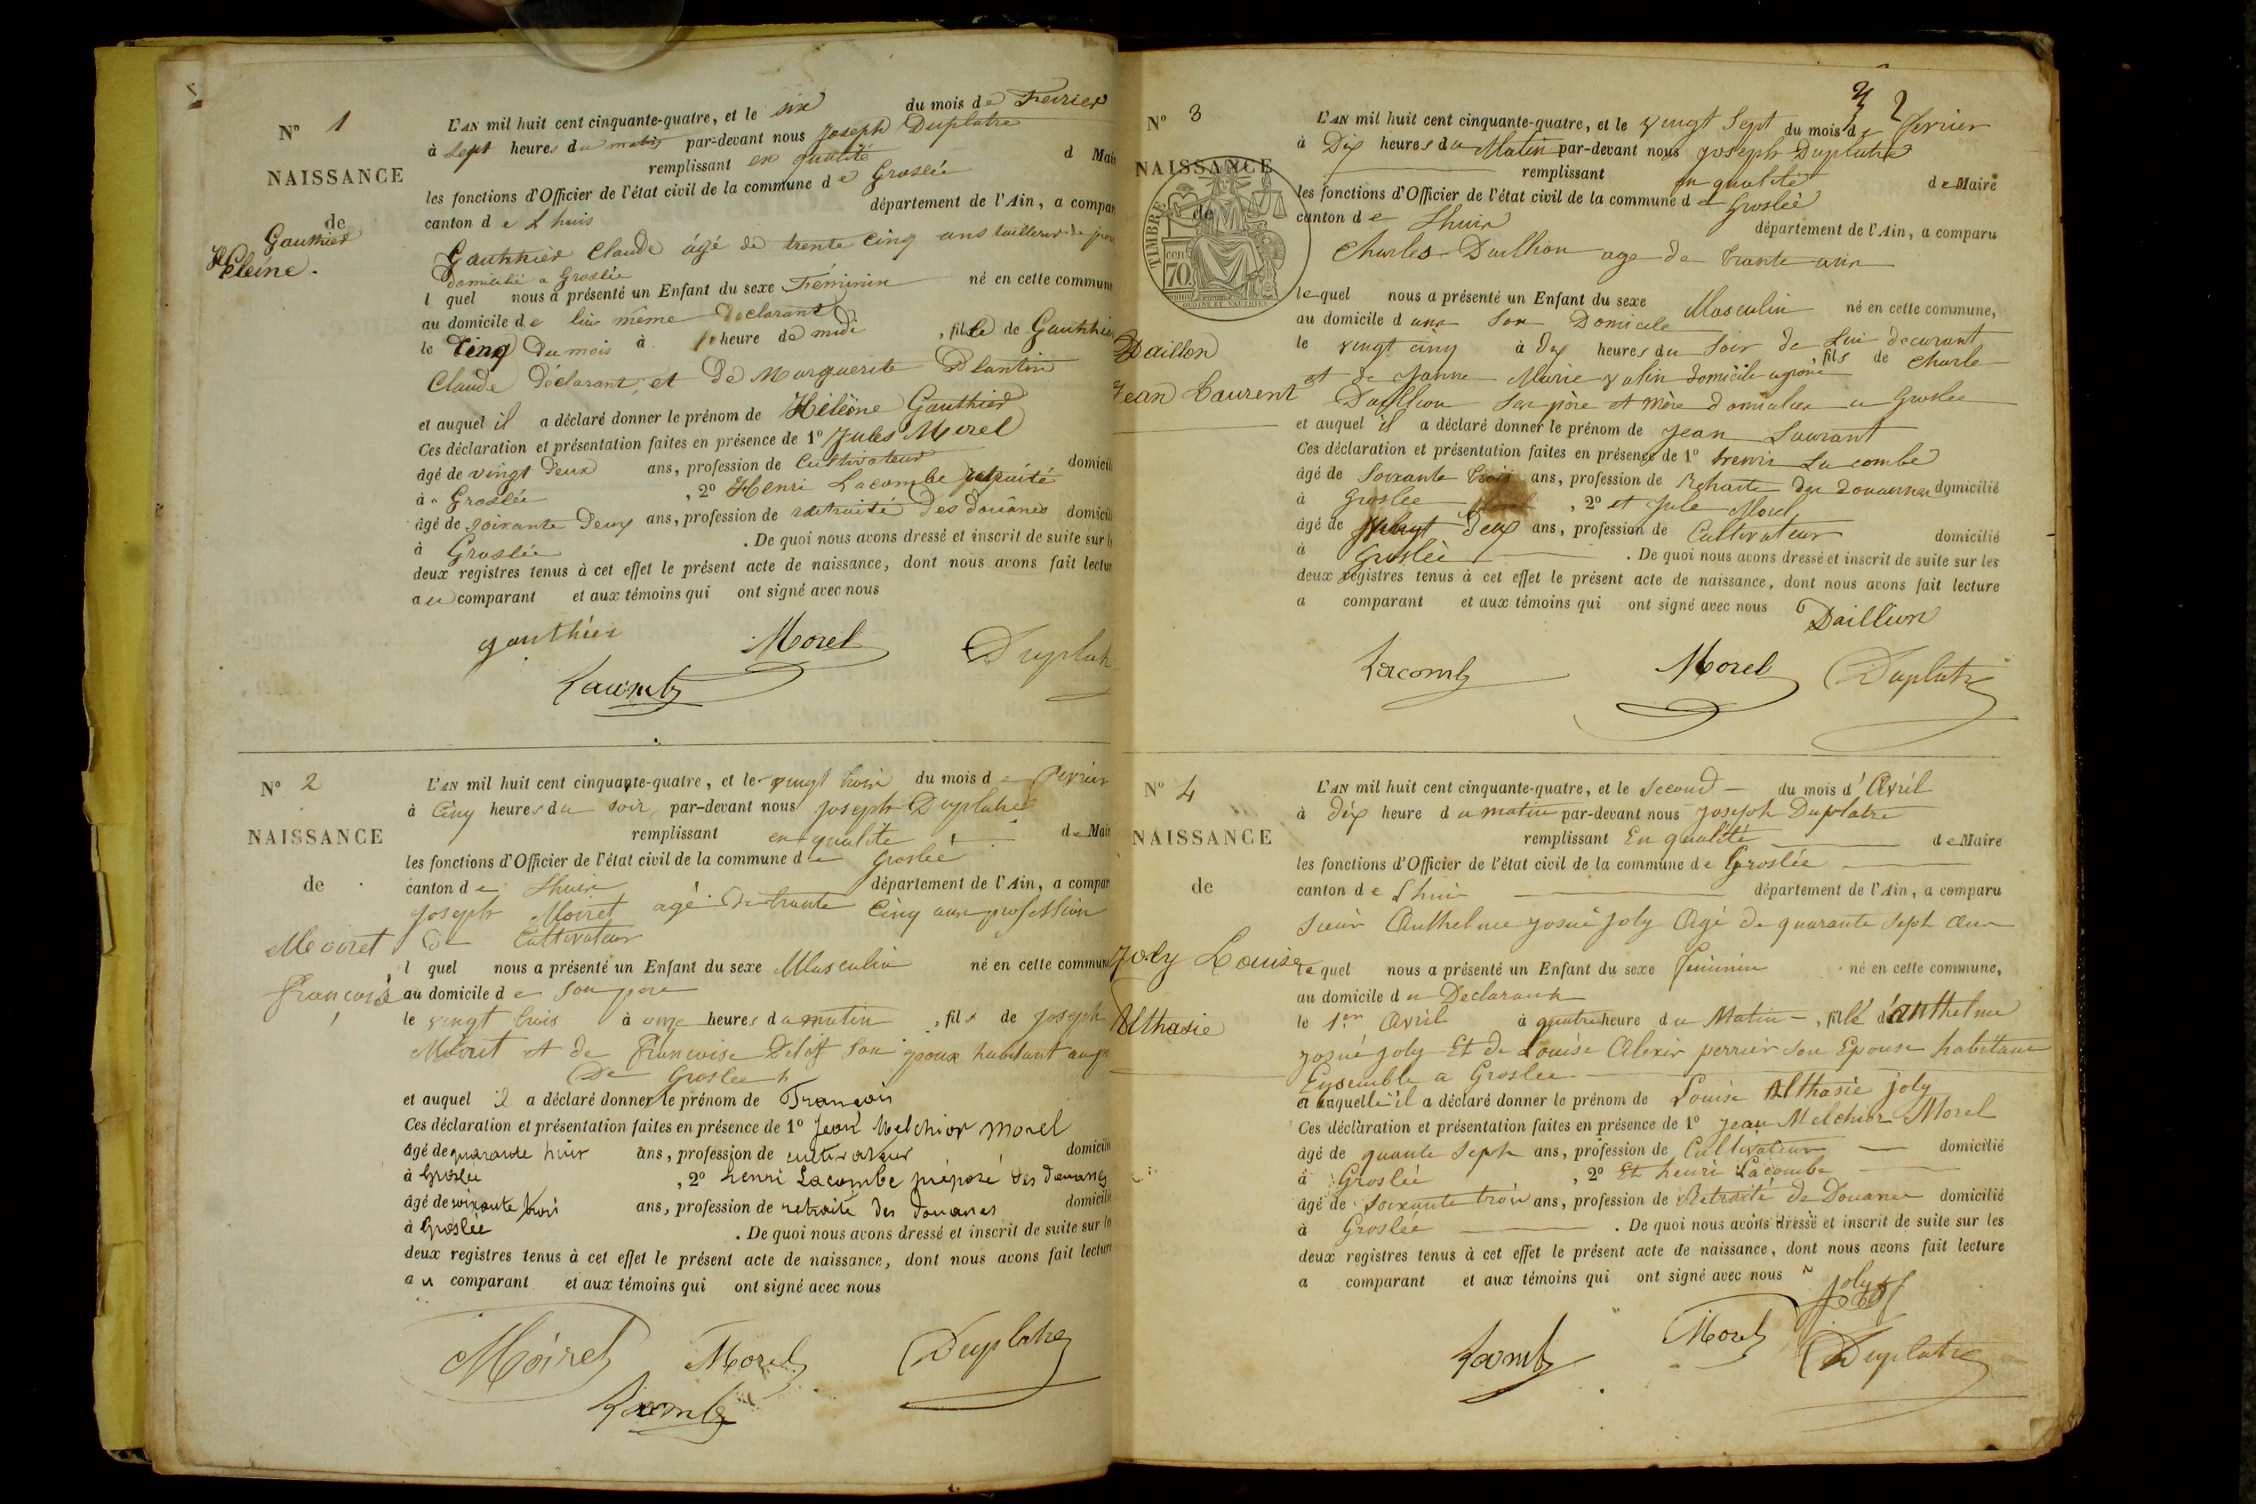 N° 1
NAISSANCE
de
Gauthier
Héleine.
L'AN mil huit cent cinquante-quatre, et le six du mois de Fevrier
à sept heures du matin par-devant nous Joseph Duplatre
remplissant en qualité d Mair
les fonctions d'Officier de l'état civil de la commune de Groslée
canton de Lhuis département de l'Ain, a compar
Gauthier Claude âgé de trente cinq ans tailleur de
domicilié a Groslée
l quel nous a présenté un Enfant du sexe Féminin né en cette commune
au domicile de lui même déclarant
le Cinq du mois à heure de midi , fille de Gauthier
Claude déclarant, et de Marguerite Plantin
et auquel il a déclaré donner le prénom de Hélèine Gauthier
Ces déclaration et présentation faites en présence de 1° Jules Morel
âgé de vingt deux ans, profession de Cultivateur domicili
à Groslée , 2° Henri Lacombe retraité
âgé de soixante deux ans, profession de retraité des douânes domicili
à Groslée . De quoi nous avons dressé et inscrit de suite sur l
deux registres tenus à cet effet le présent acte de naissance, dont nous avons fait lectur
au comparant et aux témoins qui ont signé avec nous
gauthier Morel Duplat
Lacombe
N° 2
NAISSANCE
de
Moiret
François
L'AN mil huit cent cinquante-quatre, et le vingt trois du mois de Fevrier
à Cinq heures du soir par-devant nous Joseph Duplatre
remplissant en qualité de Mair
les fonctions d'Officier de l'état civil de la commune de Groslée
canton de Lhuis département de l'Ain, a compar
Joseph Moiret agé de trante Cinq ans profession
de Cultivateur
l quel nous a présenté un Enfant du sexe Masculin né en cette commune
au domicile de son pere
le vingt trois à onze heures du matin , fils de Joseph
Moiret et de Francoise son habitant
De Groslee
et auquel il a déclaré donner le prénom de François
Ces déclaration et présentation faites en présence de 1° Jean Melchior Morel
âgé de quarante huit ans, profession de cultivateur domicili
à Groslee , 2° henri Lacombe préposé des douanes
âgé de soixante trois ans, profession de retraité des douanes domicili
à Groslée . De quoi nous avons dressé et inscrit de suite sur l
deux registres tenus à cet effet le présent acte de naissance, dont nous avons fait lecture
au comparant et aux témoins qui ont signé avec nous
Moiret Morel Duplatre
Lacombe
2
N° 3
NAISSANCE
de
TIMBRE
70
Daillon
Jean Laurent
L'AN mil huit cent cinquante-quatre, et le vingt Sept du mois de fevrier
à Dix heures du Matin par-devant nous Joseph Duplatre
remplissant en qualité de Maire
les fonctions d'Officier de l'état civil de la commune de Groslée
canton de Lhuis département de l'Ain, a comparu
Charles Daillion age de trante ans
le quel nous a présenté un Enfant du sexe Masculin né en cette commune,
au domicile dans Son Domicile
le vingt cinq à dix heures du Soir de Lui , fils de Charle
et de Janne Marie domicile
Daillion Son père et mère domicilier a Groslee
et auquel il a déclaré donner le prénom de Jean Laurant
Ces déclaration et présentation faites en présence de 1° henri Lacombe
âgé de Soixante trois ans, profession de Retraite des douannes domicilié
à Groslee , 2° et Jule Morel
âgé de vingt deux ans, profession de Cultivateur domicilié
à Groslée . De quoi nous avons dressé et inscrit de suite sur les
deux registres tenus à cet effet le présent acte de naissance, dont nous avons fait lecture
a comparant et aux témoins qui ont signé avec nous Daillion
Lacombe Morel Duplatre
N° 4
NAISSANCE
de
Joly Louise
Althasie
L'AN mil huit cent cinquante-quatre, et le Second du mois d'Avril
à Dix heure du matin par-devant nous Joseph Duplatre
remplissant En qualité de Maire
les fonctions d'Officier de l'état civil de la commune de Groslée
canton de Lhui département de l'Ain, a comparu
Sieur Anthelme Josué Joly Agé de quarante Sept ans
le quel nous a présenté un Enfant du sexe Feminin né en cette commune,
au domicile du Declarant
le 1er Avril à quatre heure du Matin , fille d'anthelme
Josué Joly Et de Louise Alexis perrier son Epouse habitans
Ensemble a Groslee
et auquelle il a déclaré donner le prénom de Louise Althasie joly
Ces déclaration et présentation faites en présence de 1° Jean Melchior Morel
âgé de quante Sept ans, profession de Cultivateur domicilié
à Groslée , 2° Et henri Lacombe
âgé de Soixante trois ans, profession de Retraité de Douane domicilié
à Groslée . De quoi nous avons dressé et inscrit de suite sur les
deux registres tenus à cet effet le présent acte de naissance, dont nous avons fait lecture
a comparant et aux témoins qui ont signé avec nous
Joly
Lacombe Morel Duplatre